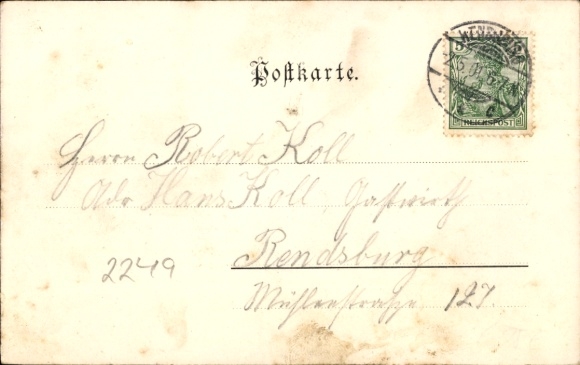 Postkarte.
5 5
REICHSPOST
Herrn Robert Koll
Adr Hans Koll, Gastwirth
Rendsburg
2249
Mühlenstraße 127.